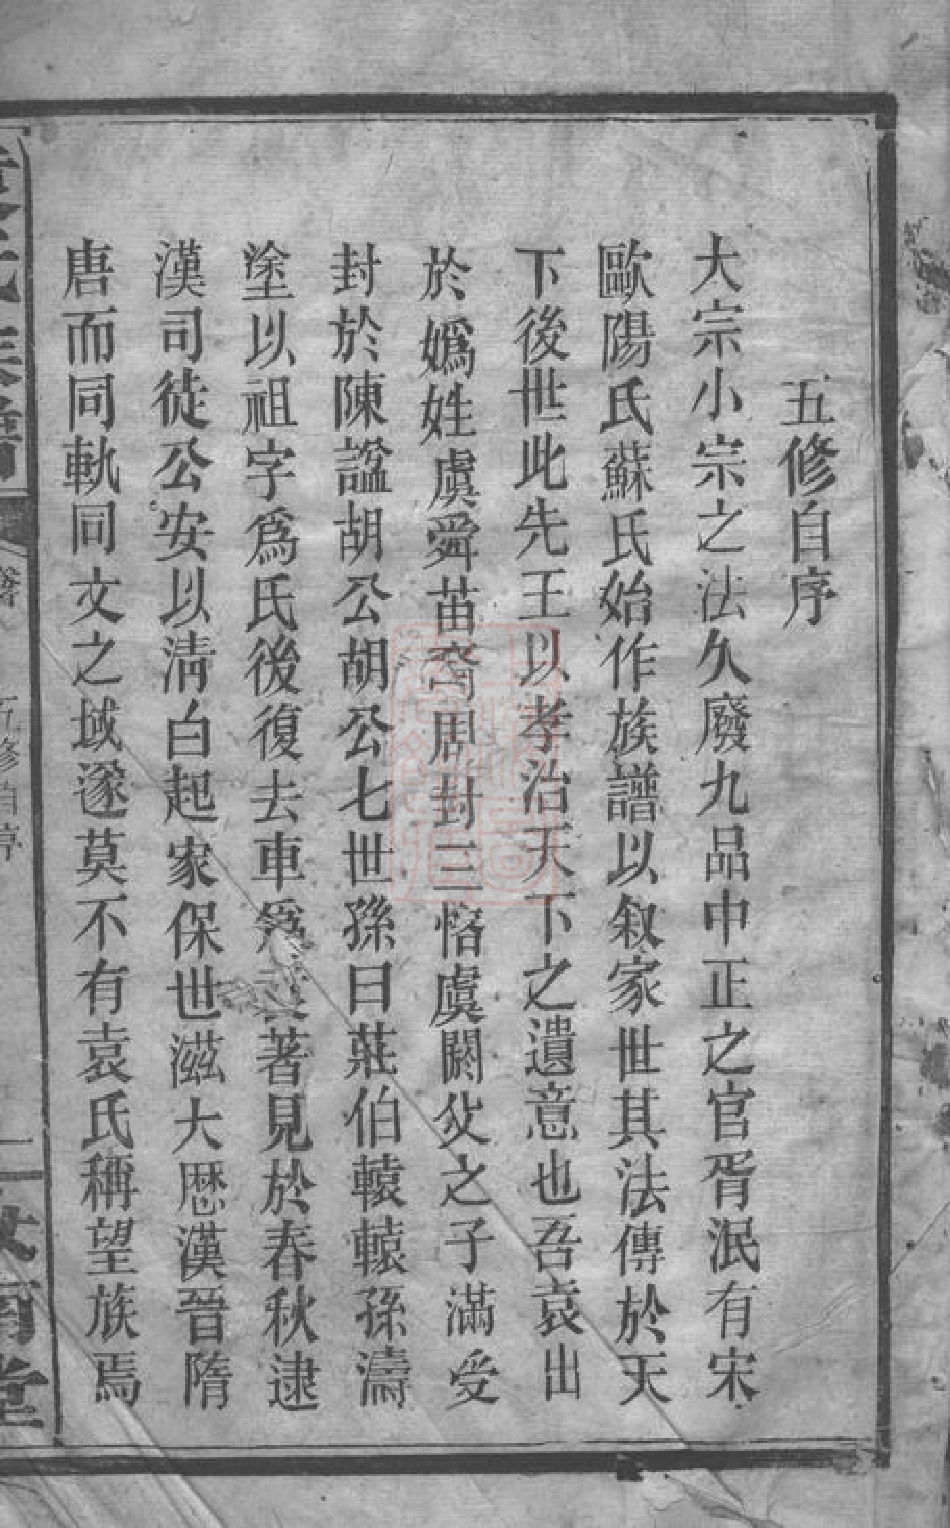 五修自序
大宗小宗之法久廢九品中正之官胥泯有宋
歐陽氏蘇氏始作族譜以叙家世其法傳於天
下後世此先王以孝治天下之遺意也吾袁出
於嬀姓虞舜苗裔周封三恪虞閼父之子滿受
封於陳諡胡公胡公七世孫曰莊伯轅轅孫濤
塗以祖字爲氏後復去車爲袁著見於春秋逮
漢司徒公安以淸白起家保世滋大歷漢晉隋
唐而同軌同文之域遂莫不有袁氏稱望族焉
氏族譜
五修自序
一
堂